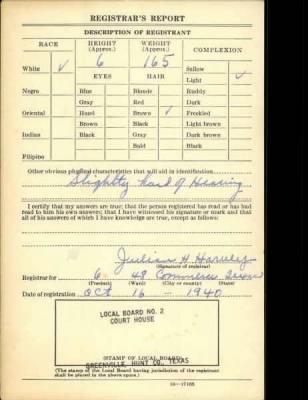 REGISTRAR'S REPORT
DESCRIPTION OF REGISTRANT
RACE
HEIGHT (Approx.)
WEIGHT (Approx.)
COMPLEXION
White ✓
6
165
Sallow
EYES
HAIR
Light ✓
Negro
Blue
Blonde
Ruddy
Gray
Red
Dark
Oriental
Hazel
Brown ✓
Freckled
Brown
Black
Light brown
Indian
Black
Gray
Dark brown
Bald
Black
Filipino
Other obvious physical characteristics that will aid in identification
Slightly hard of Hearing
I certify that my answers are true; that the person registered has read or has had
read to him his own answers; that I have witnessed his signature or mark and that
all of his answers of which I have knowledge are true, except as follows:
Julian H. Harvey
(Signature of registrar)
Registrar for 6 48 Commerce Texas
(Precinct) (Ward) (City or county) (State)
Date of registration Oct 16 - 1940
LOCAL BOARD NO. 2
COURT HOUSE
(STAMP OF LOCAL BOARD)
GREENVILLE, HUNT CO., TEXAS
(The stamp of the Local Board having jurisdiction of the registrant
shall be placed in the above space.)